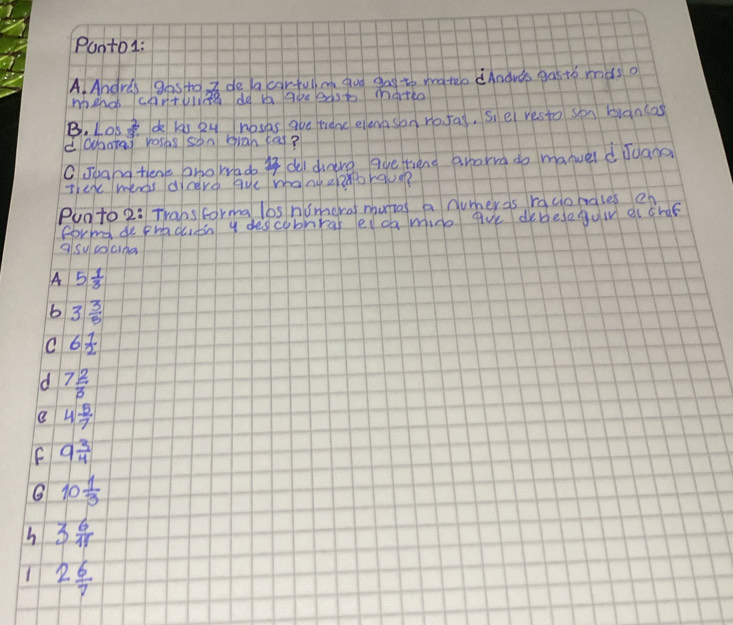 Punto1:
A. Andrés gasto 7 de la cartulina que gasto mateo ¿Andrés gastó más o
menos cartulina de la que gasto mateo
B. Los de las 24 rosas que tiene elena son rojas. Si el resto son blancas
¿cuantas rosas son blancas?
C Juana tiene ahorrado del dinero que tiene ahorrado manuel ¿Juana
tiene menos dinero que manuel? porque?
Punto 2: Transforma los números mixtos a numeros racionales en
forma de fracción y descubriras el camino que debe seguir el chef
a su cocina
A 5 1/3
b 3 3/5
C 6 1/2
d 7 2/3
e 4 5/7
F 9 3/4
G 10 1/3
h 3 6/11
i 2 6/7